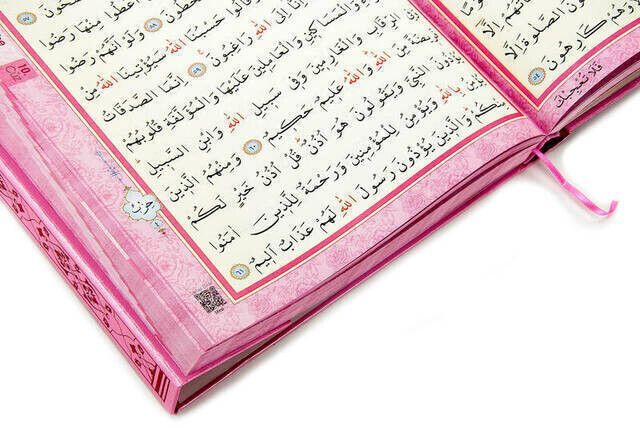 الصَّلٰوةَ اِلَّا
وَهُمْ كَارِهُونَ ٥٤
فَلَا تُعْجِبْكَ
اُعْطُوا مِنْهَا رَضُوا
٥٨ وَلَوْ اَنَّهُمْ رَضُوا
وَقَالُوا حَسْبُنَا اللّٰهُ سَيُؤْتِينَا اللّٰهُ مِنْ
اللّٰهِ رَاغِبُونَ ٥٩ اِنَّمَا الصَّدَقَاتُ
وَالْمَسَاكِينِ وَالْعَامِلِينَ عَلَيْهَا وَالْمُؤَلَّفَةِ قُلُوبُهُمْ
الرِّقَابِ وَالْغَارِمِينَ وَفِي سَبِيلِ اللّٰهِ وَابْنِ السَّبِيلِ
فَرِيضَةً مِنَ اللّٰهِ وَاللّٰهُ عَلِيمٌ حَكِيمٌ ٦٠ وَمِنْهُمُ الَّذِينَ
يُؤْذُونَ النَّبِيَّ وَيَقُولُونَ هُوَ اُذُنٌ قُلْ اُذُنُ خَيْرٍ لَكُمْ
بِاللّٰهِ وَيُؤْمِنُ لِلْمُؤْمِنِينَ وَرَحْمَةٌ لِلَّذِينَ اٰمَنُوا
مِنْكُمْ وَالَّذِينَ يُؤْذُونَ رَسُولَ اللّٰهِ لَهُمْ عَذَابٌ اَلِيمٌ ٦١
10.
Cüz
حزب